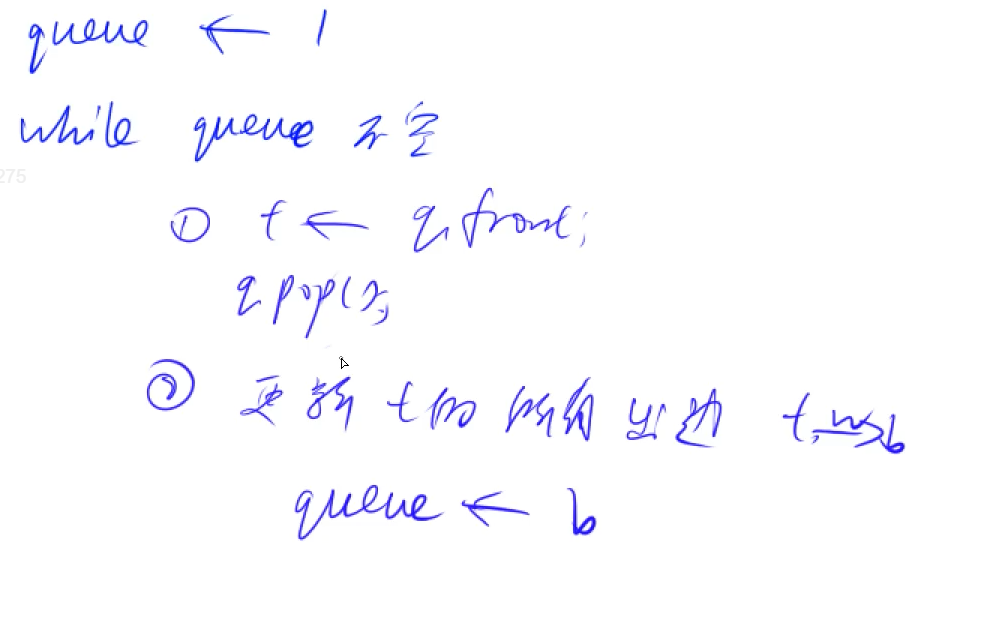 queue ← 1
while queue 不空
275
① t ← q.front;
q.pop();
② 更新 t的 所有 出边 t w→ b
queue ← b